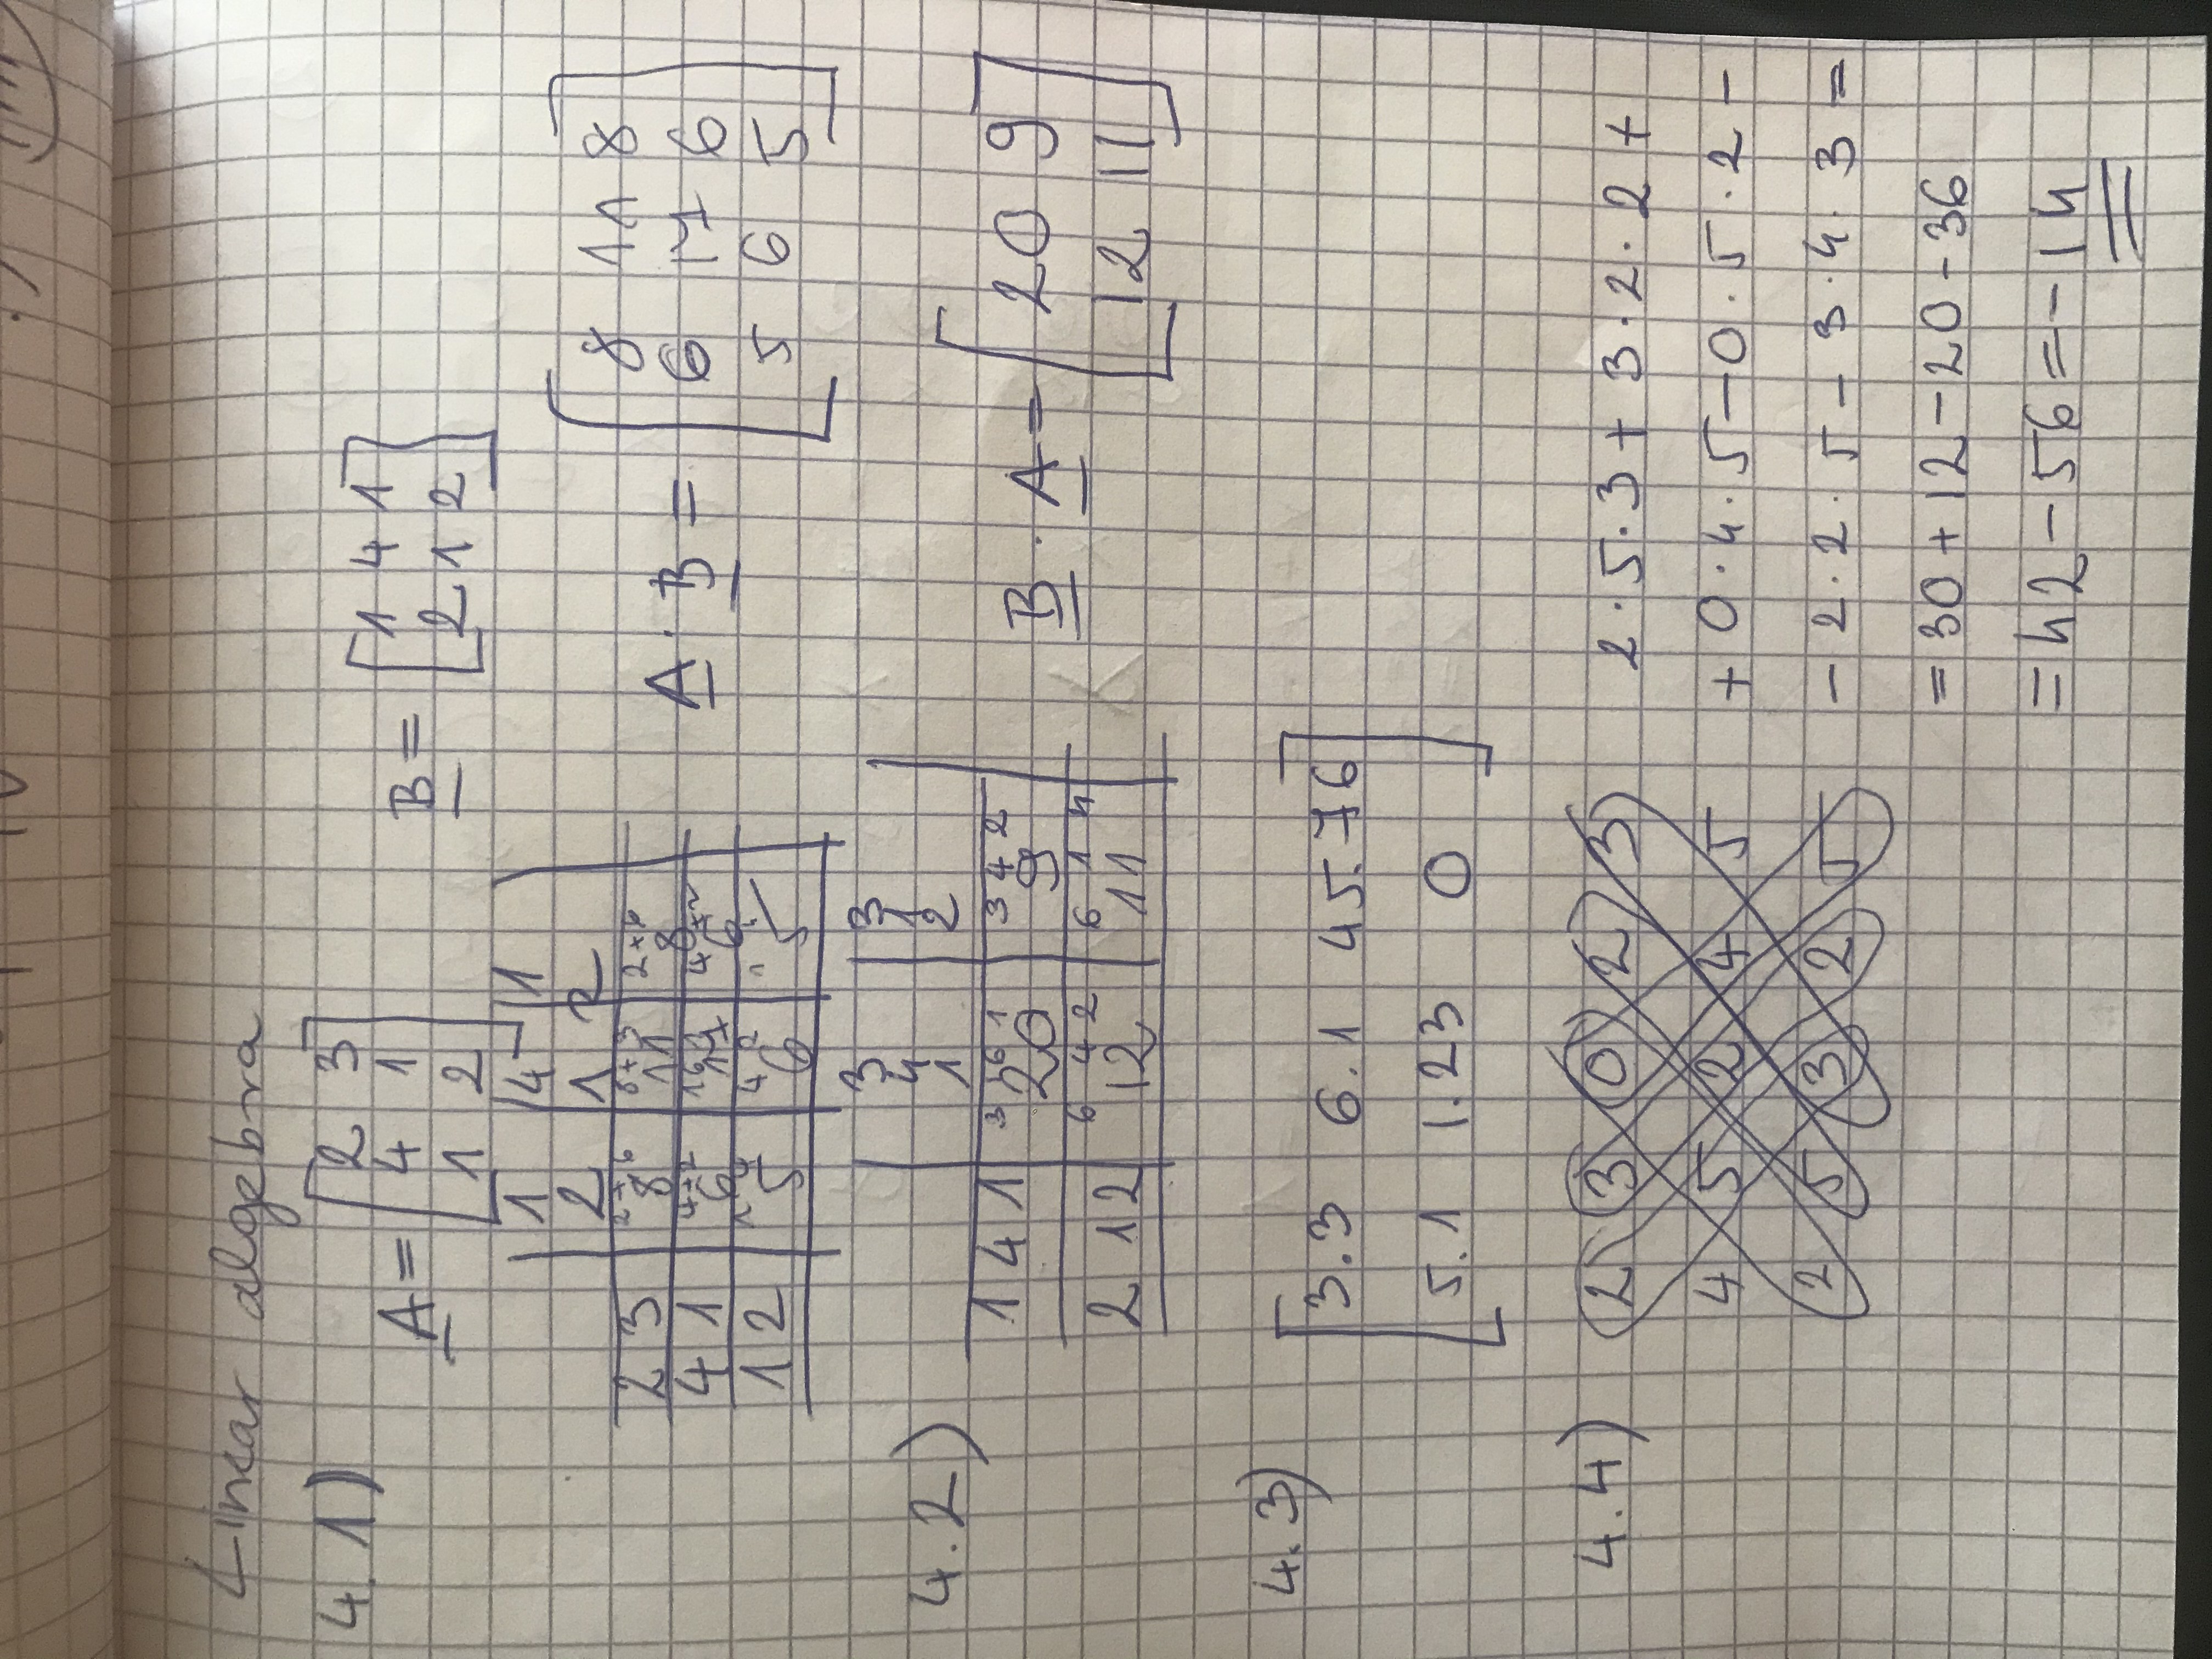 Linear algebra
4.1)
A = [2 3
4 1
1 2]
B = [1 4 1
2 1 2]
1 4 1
2 1 2
2+6 8+3 2+6
2 3 8 11 8
4+2 16 1 4+2
4 1 6 17 6
1 4 4 2
1 2 5 6 5
A · B = [8 11 8
6 17 6
5 6 5]
4.2)
3 3
4 1
1 2
3 16 1 3 4 2
1 4 1 20 9
6 4 2 6 1 4
2 1 2 12 11
B · A = [20 9
12 11]
4.3)
[3.3 6.1 45.76
5.1 1.23 0]
4.4)
2 3 0 2 3
4 5 2 4 5
2 5 3 2 5
2·5·3 + 3·2·2 +
+ 0·4·5 - 0·5·2 -
- 2·2·5 - 3·4·3 =
= 30 + 12 - 20 - 36
= 42 - 56 = -14